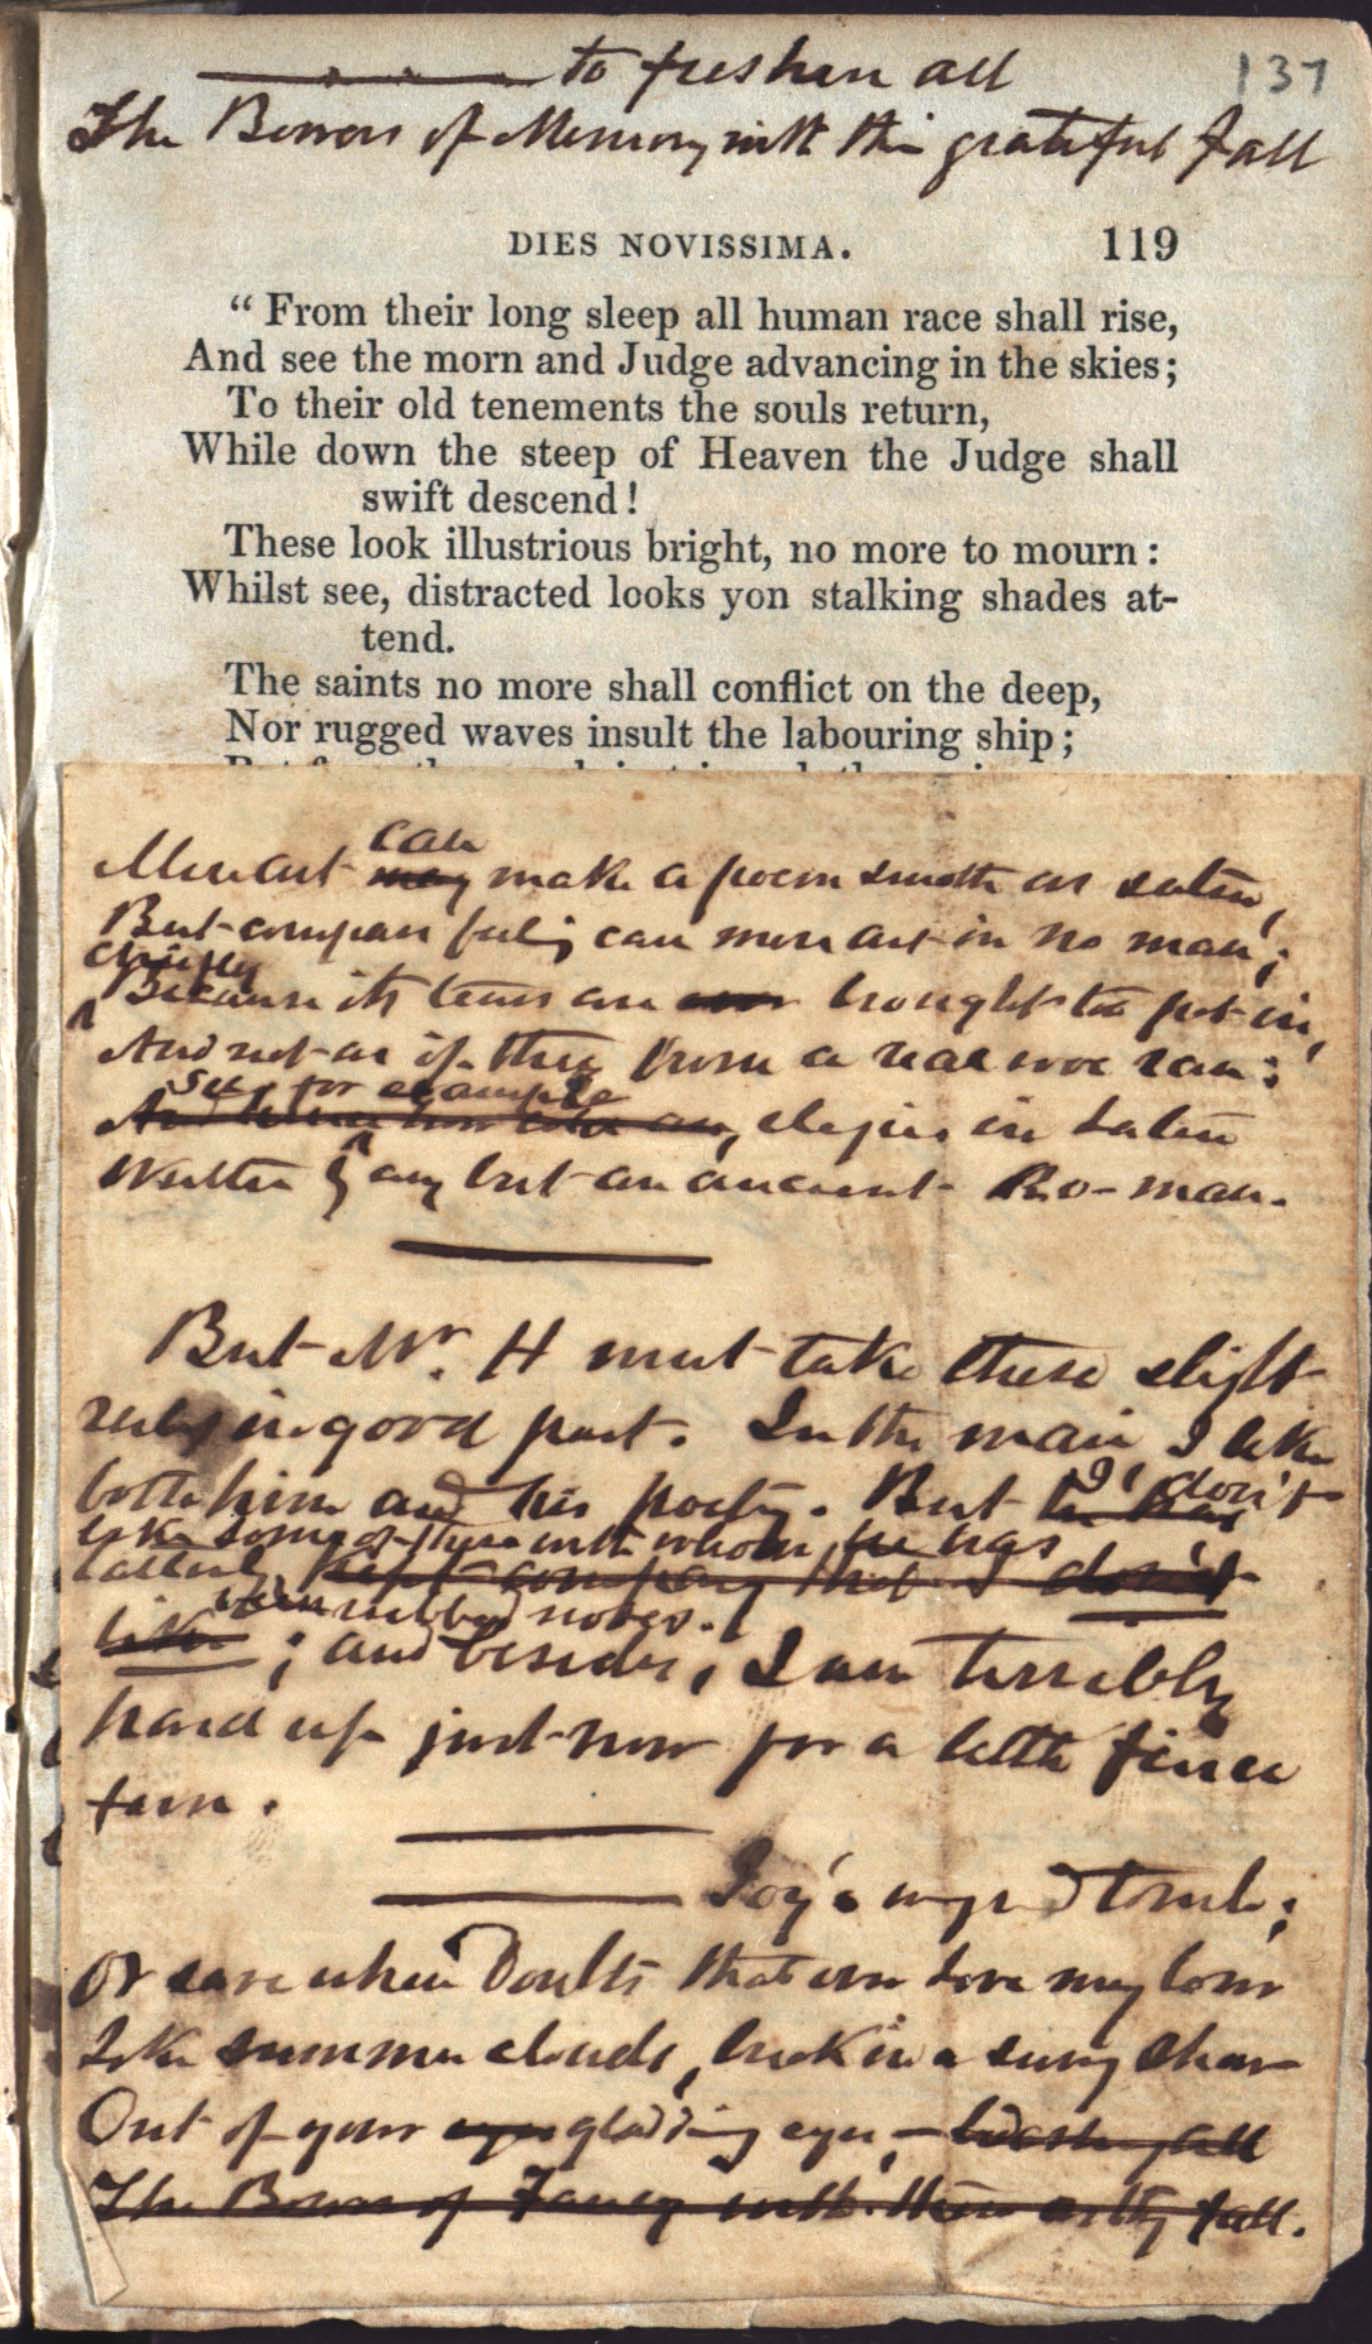 to freshen all
137
The Bowers of Memory with their grateful fall
DIES NOVISSIMA. 119
“ From their long sleep all human race shall rise,
And see the morn and Judge advancing in the skies;
To their old tenements the souls return,
While down the steep of Heaven the Judge shall
swift descend!
These look illustrious bright, no more to mourn:
Whilst see, distracted looks yon stalking shades at-
tend.
The saints no more shall conflict on the deep,
Nor rugged waves insult the labouring ship;
can
Mere art may make a poem smooth as satin,
But compass feeling can mere art in no man;
chiefly
Because its terms are brought too pat in,
And not as if they from a real woe ran:
See, for example
elegies in Latin
Written by any but an ancient Ro-man.
But Mr. H must take these slight
rubs in good part. In the main I like
both him and his poetry. But he has I don't
like some of those with whom he has
latterly kept company that I don't
been rubbed noses.
like; and besides, I am terribly
hard up just now for a little fierce
fun.
Joy's tomb;
Or save when Doubts that over Love may lour
Like summer clouds, break in a sunny shower
Out of your eyes gladdening eyes,
The Bowers of Fancy with their fall.